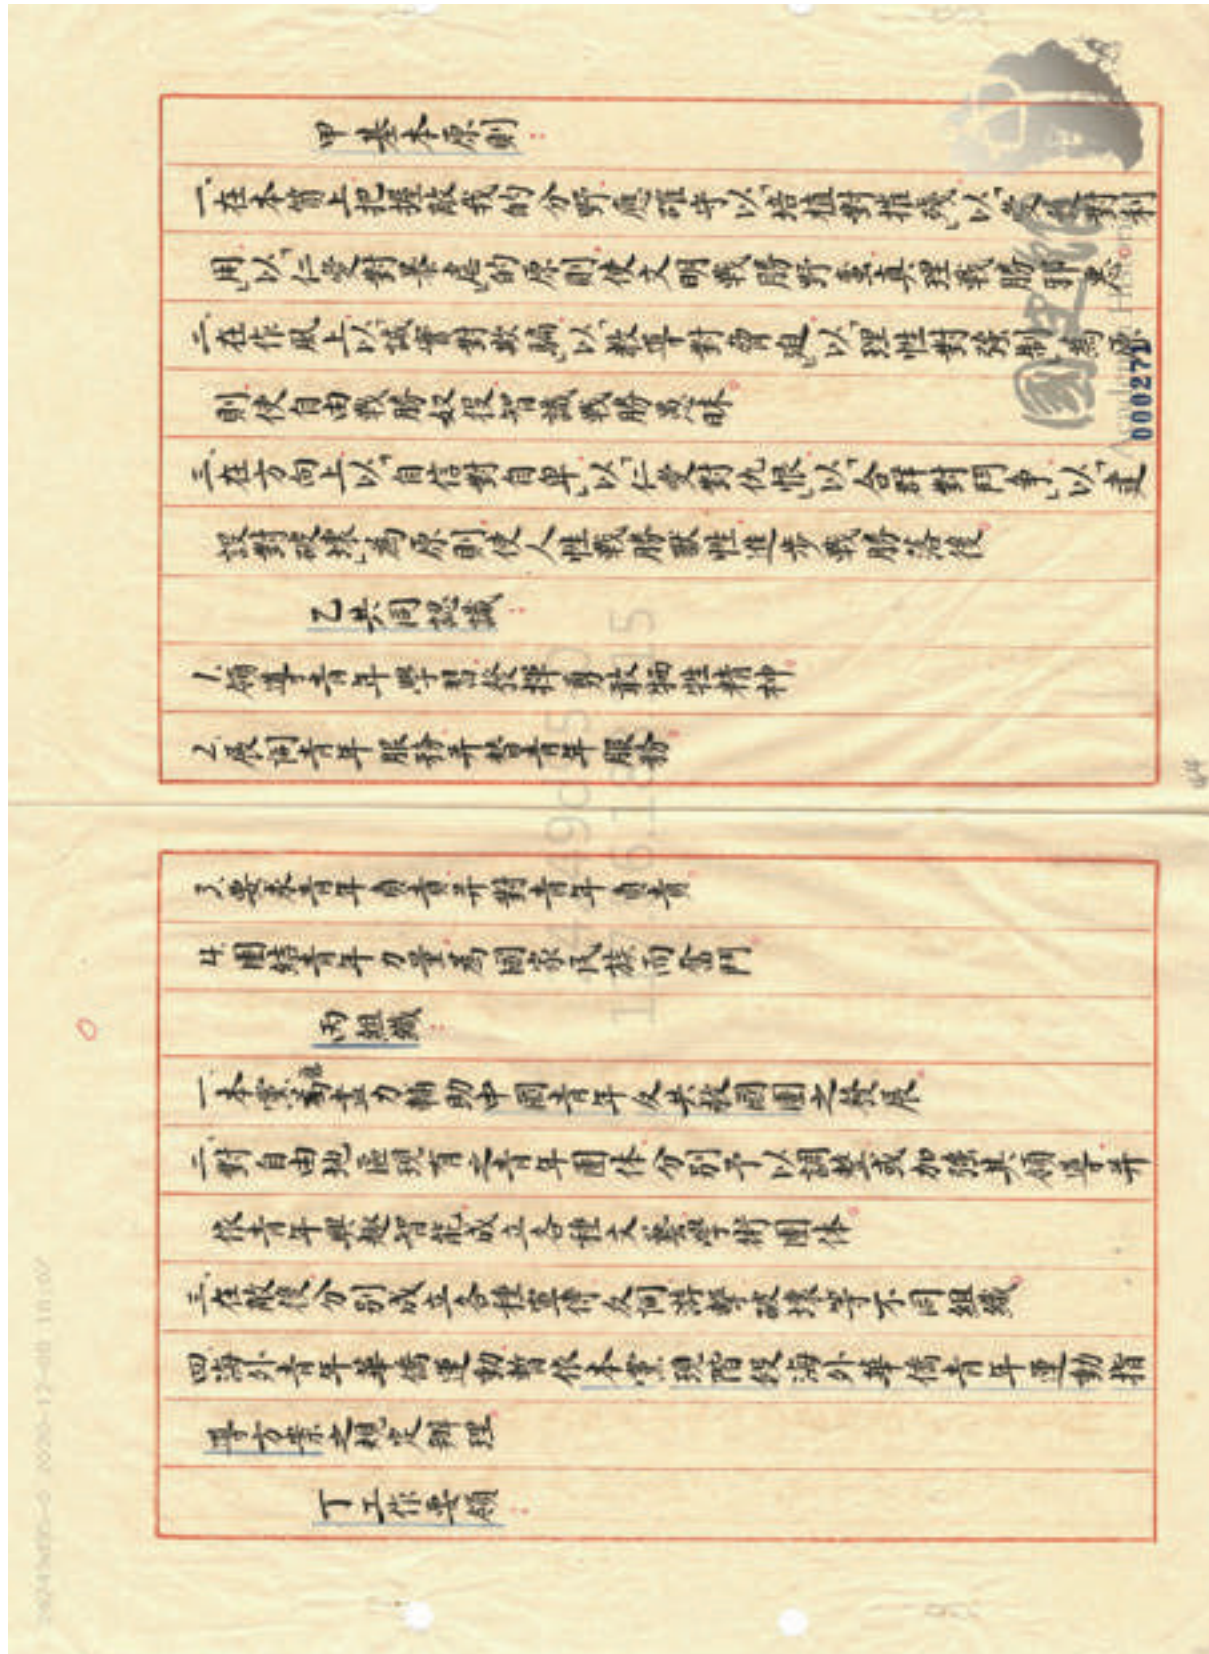 甲基本原則：
一、在本質上把握敵我的分野應確守以「培植」對「摧殘」以「愛護」對「利
用」以「仁愛」對「暴虐」的原則使文明戰勝野蠻真理戰勝邪惡。
二、在作風上以「誠實」對「欺騙」以「教導」對「脅迫」以「理性」對「強制」為原
則使自由戰勝奴役智識戰勝愚昧。
三、在方向上以「自信」對「自卑」以「仁愛」對「仇恨」以「合群」對「鬥爭」以「建
設」對「破壞」為原則使人性戰勝獸性進步戰勝落後。
乙共同認識：
1.領導青年學習發揮勇敢犧牲精神。
2.展開青年服務并替青年服務。
3.要求青年負責并對青年負責。
4.團結青年力量為國家民族而奮鬥。
丙組織：
一、本黨應盡力輔助中國青年反共救國團之發展。
二、對自由地區現有之青年團体分別予以調整或加強其領導并
依青年興趣智能成立各種文藝學術團体。
三、在敵後分別成立各種宣傳反間游擊破壞等不同組織。
四、海外青年華僑運動暫依本黨現階段海外華僑青年運動指
導方案之規定辦理。
丁工作要領：
000271
國史館
Academia Historica